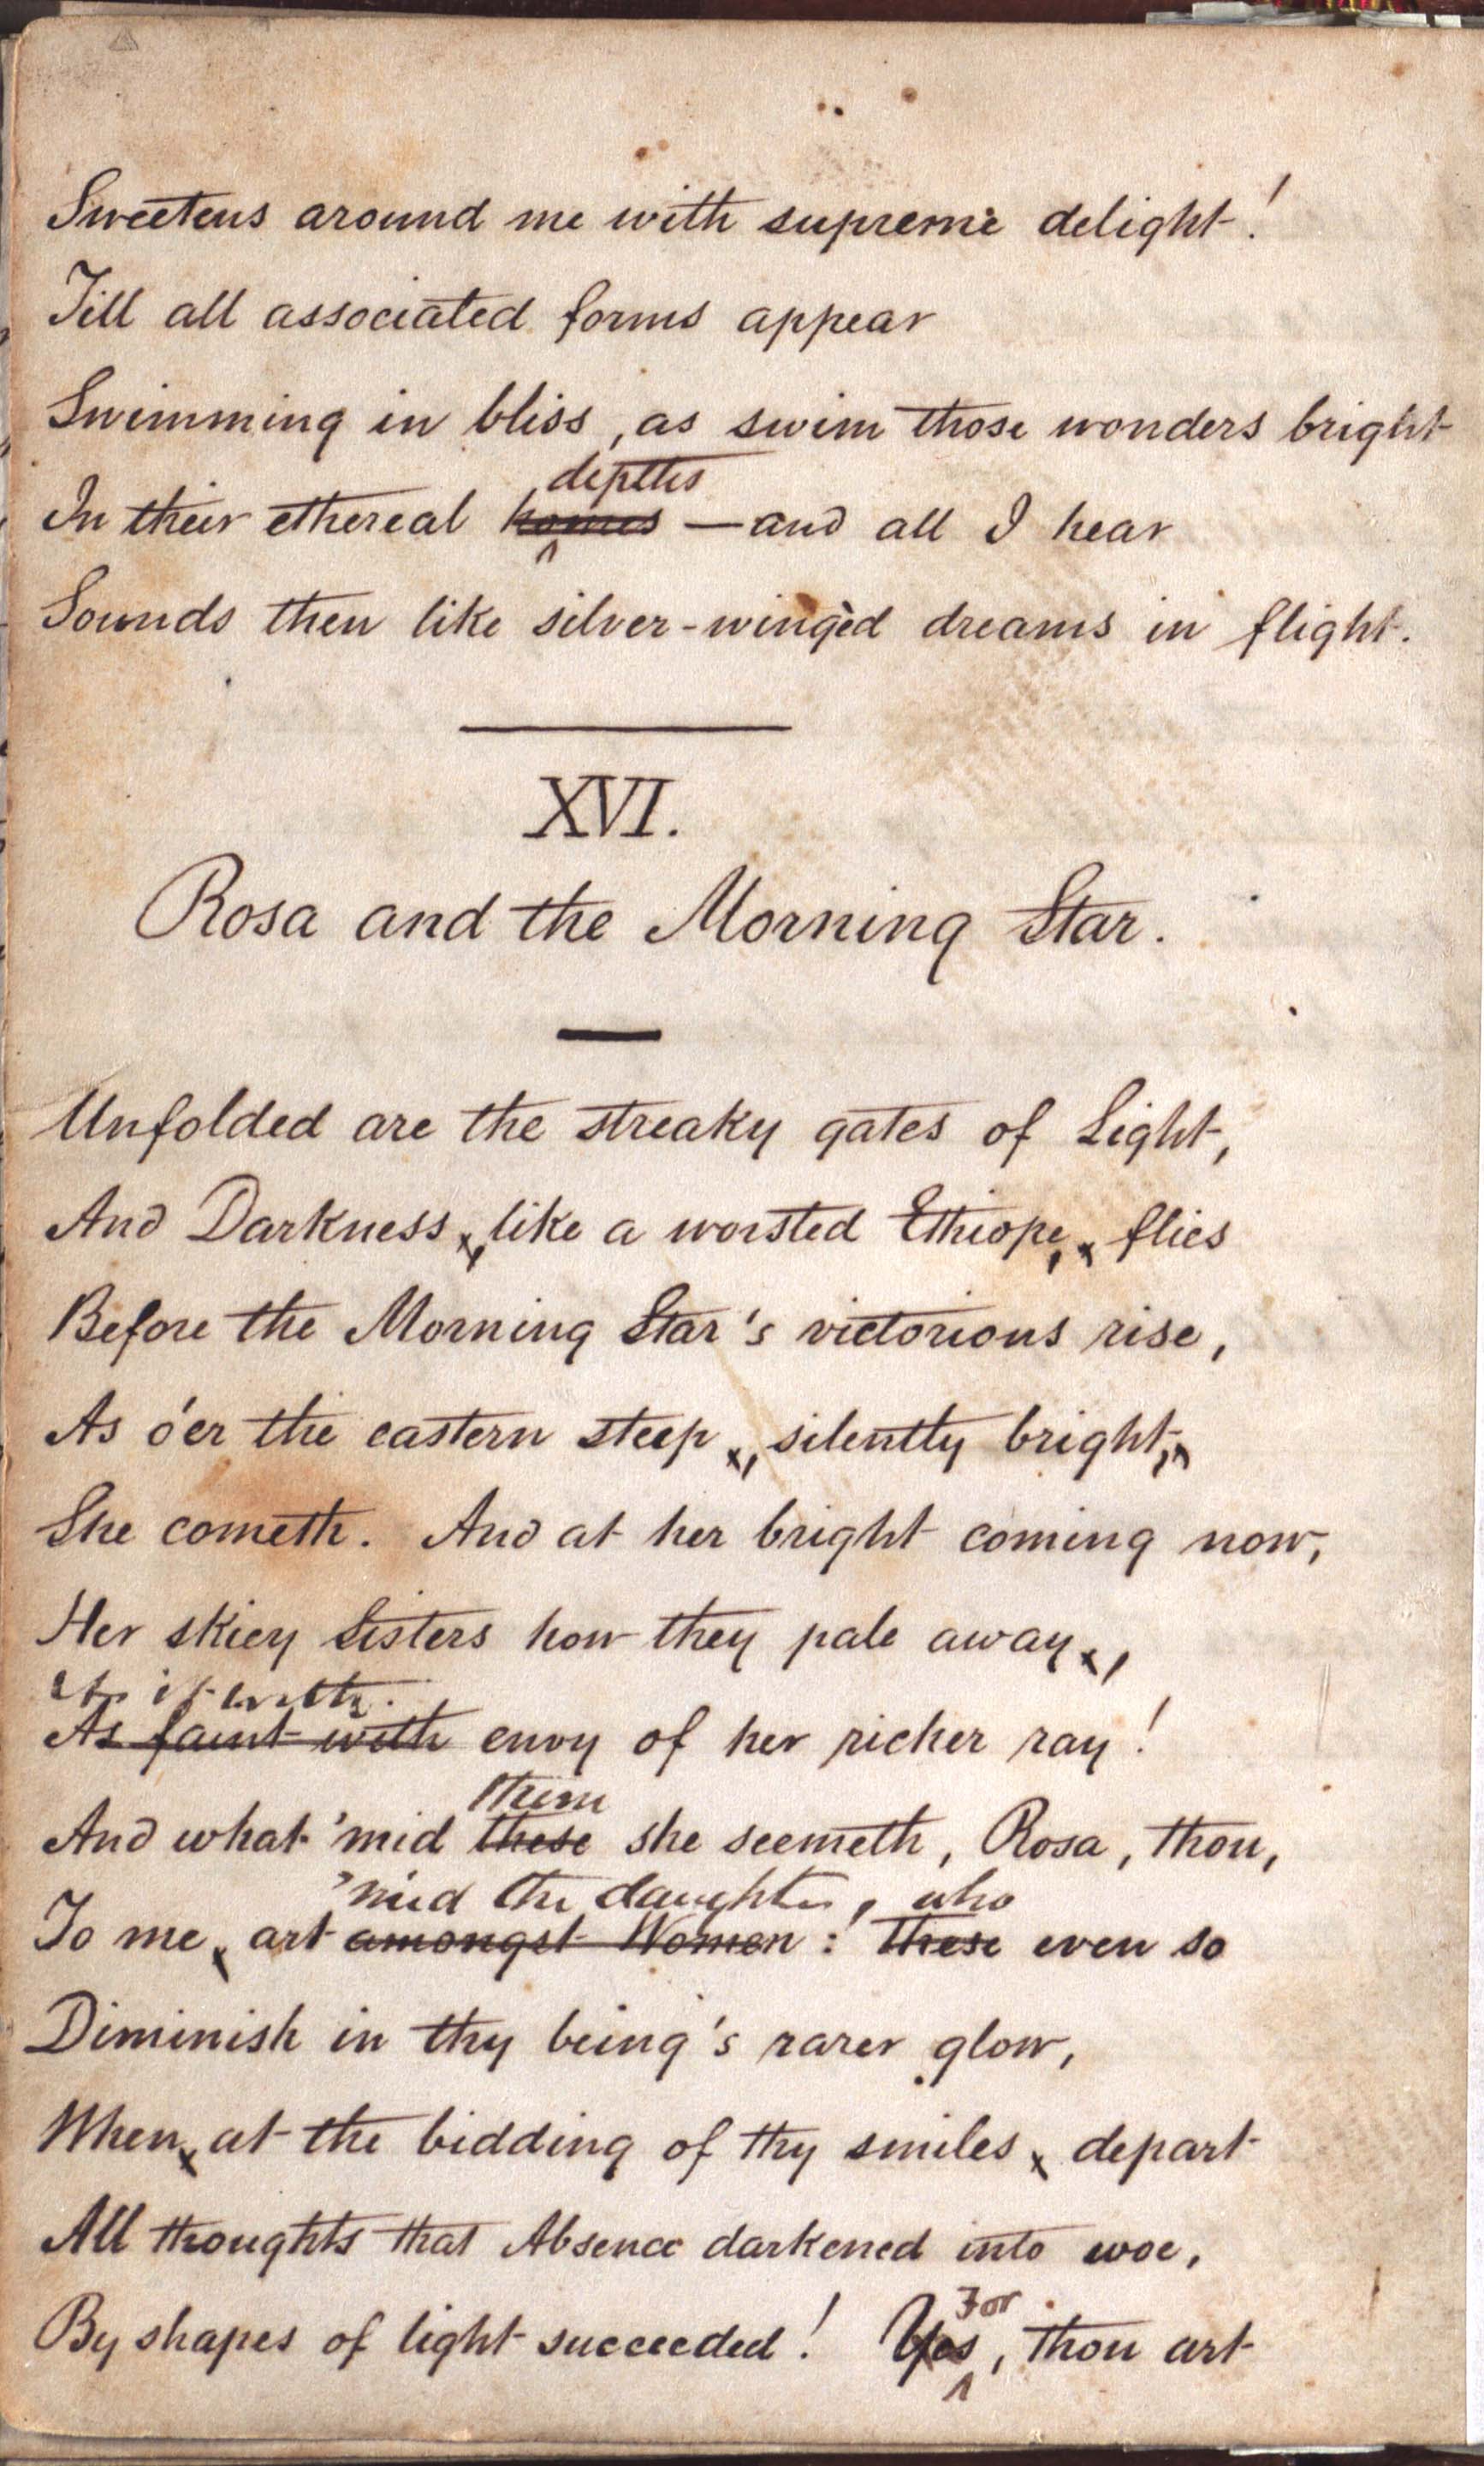 Sweetens around me with supreme delight!
Till all associated forms appear
Swimming in bliss, as swim those wonders bright
depths
In their ethereal homes — and all I hear
Sounds then like silver-wingèd dreams in flight.
XVI.
Rosa and the Morning Star.
Unfolded are the streaky gates of Light,
And Darkness, like a worsted Ethiope, flies
Before the Morning Star's victorious rise,
As o'er the eastern steep, silently bright,
She cometh. And at her bright coming now,
Her skiey Sisters how they pale away,
As if with
As faint with envy of her richer ray!
them
And what 'mid these she seemeth, Rosa, thou,
'mid the daughters, who
To me, art amongst Women: These even so
Diminish in thy being's rarer glow,
When, at the bidding of thy smiles, depart
All thoughts that Absence darkened into woe,
For
By shapes of light succeeded! Yes, thou art